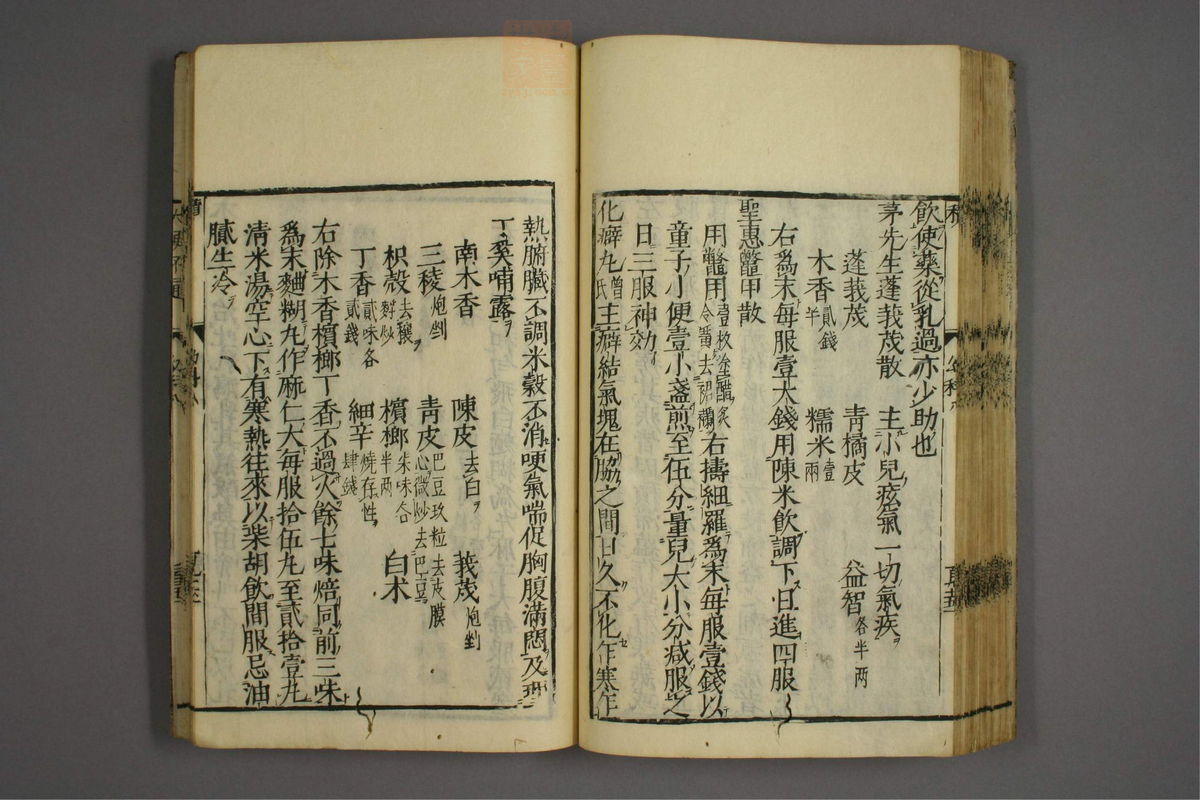 飲使藥從乳過亦少助也
茅先生蓬莪茂散　主小兒痃氣一切氣疾
蓬莪茂　青橘皮　益智各半兩
木香貳錢半　糯米壹兩
右爲末每服壹大錢用陳米飲調下日進四服
聖惠鼈甲散
用鼈甲壹枚塗醋炙令黃去裙襴右擣細羅爲末每服壹錢以
童子小便壹小盞煎至伍分量兒大小分减服之
日三服神効
化癖丸曾氏主癖結氣塊在脇之間日久不化乍寒乍
熱腑臟不調米穀不消哽氣喘促胸腹滿悶及
丁奚哺露
南木香　陳皮去白　莪茂炮剉
三稜炮剉　青皮巴豆玖粒去皮膜心微炒去巴豆
枳殼去穰麩炒貳味各　檳榔半兩　白术
丁香貳錢　細辛燒存性肆錢
右除木香檳榔丁香不過火餘七味焙同前三味
爲末麵糊丸作麻仁大每服拾伍丸至貳拾壹丸
淸米湯空心下有寒熱往來以柴胡飲間服忌油
膩生冷